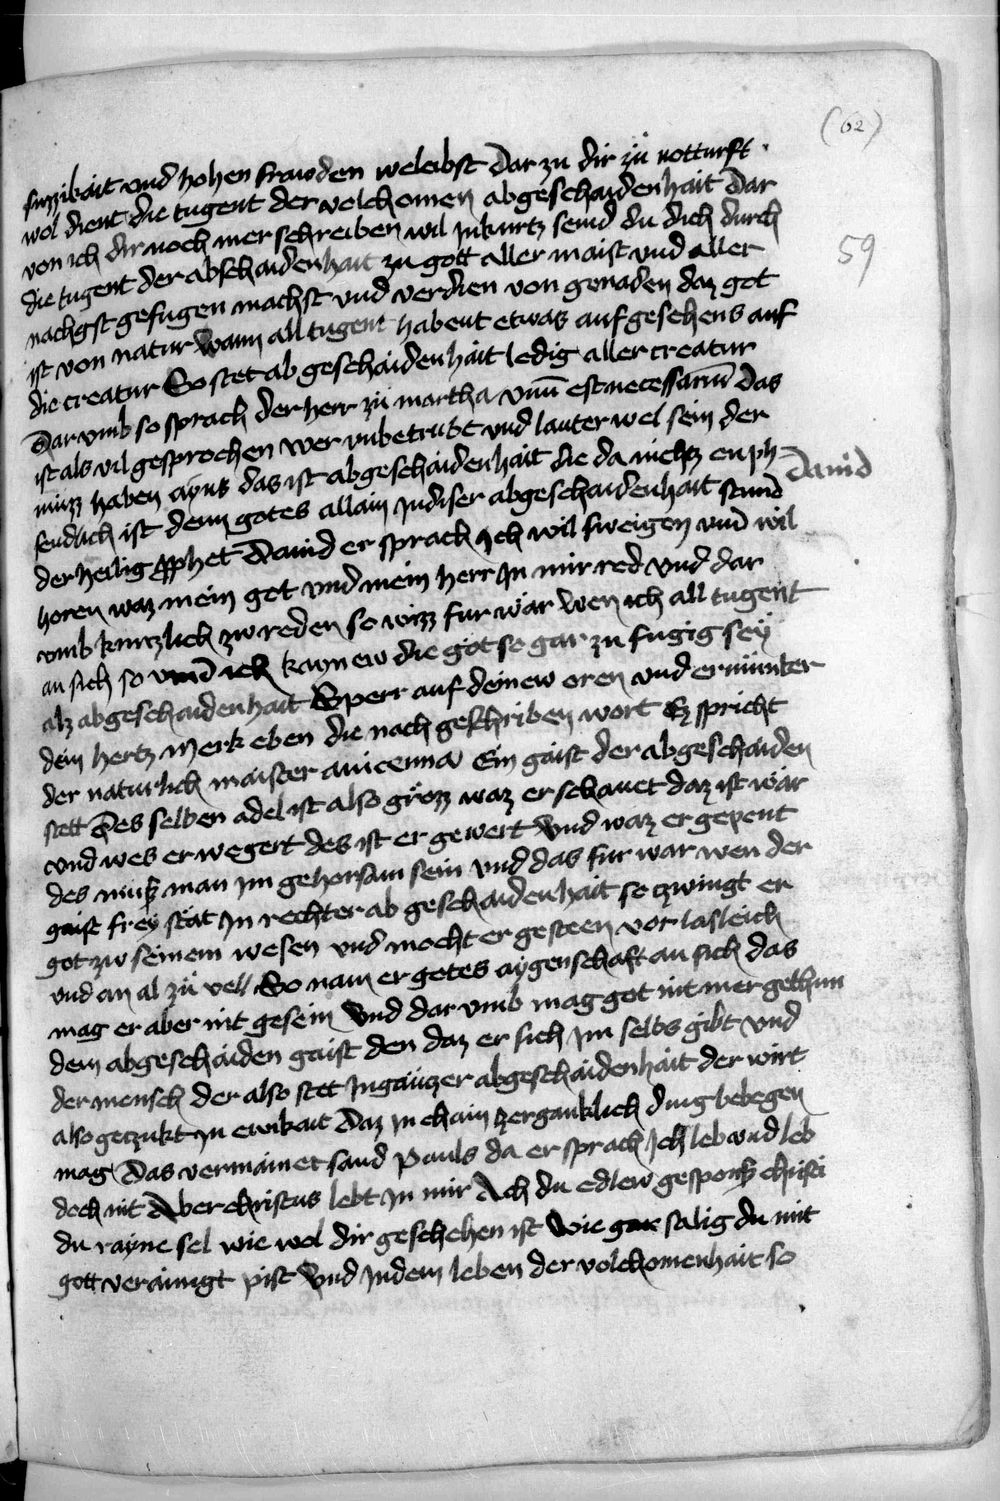 (62)
suzzikait vnd hohen frawden weleibst Dar zu dir zü notturft
wol dient die tugent der volchomen abgeschaidenhait Dar
von ich dir noch mer schreiben wil Inkurtz seind du dich durch
die tugent der abschaidenhait zu gott aller maist vnd aller
59
nachgst gefugen machst vnd verdien von genaden daz got
ist von natur wann all tugent habent etwas aufgesehens auf
die creatur So stet ab geschaidenhait ledig aller creatur
Dar vmb so sprach der herr zü martha vnu̅ est necessariu̅ das
ist als vil gesprochen wer vnbetrubt vnd lauter wel sein der
muzz haben ayns das ist abgeschaidenhait die da nichtz enph
Dauid
fendlich ist denn gotes allain Indiser abgeschaidenhait stund
der heilig p̱phet Dauid er sprach Ich wil sweigen vnd wil
horen waz mein got vnd mein herr In mir red vnd dar
vmb kurczlich zw reden so wizz fur wär wen ich all tugent
an sich so vind ich kainew die got so gar zu fugig sey
alz abgeschaidenhait Sperr auf deinew oren vnd ermünter
dein hertz merk eben die nach geschriben wort Ez spricht
der naturlich maister auicenna Ein gaist der abgeschaiden
stett Des selben adel ist also grozz waz er schauet daz ist war
vnd wes er wegert des ist er gewert vnd waz er gepeut
des muss man im gehorsam sein vnd das fur war wen der
gaist frey stät In rechter ab geschaidenhait so zwingt er
got zw seinem wesen vnd mocht er gesteen vor lasleich
vnd an al zü vell So nam er gotes aygenschaft an sich das
mag er aber nit gesein vnd dar vmb mag got nit mer gethun
dem abgeschaiden gaist den daz er sich im selbs gibt vnd
der mensch der also stet Inganczer abgeschaidenhait der wirt
also geczukt In ewikait Daz In chain zerganklich ding bebegen
mag Das vermainet sand Pauls da er sprach Ich leb vnd leb
doch nit Aber christus lebt In mir Ach du edlew gesponß christi
du rayne sel wie wol dir geschehen ist Wie gar salig du mit
gott verainigt pist vnd Indem leben der volchomenhait so